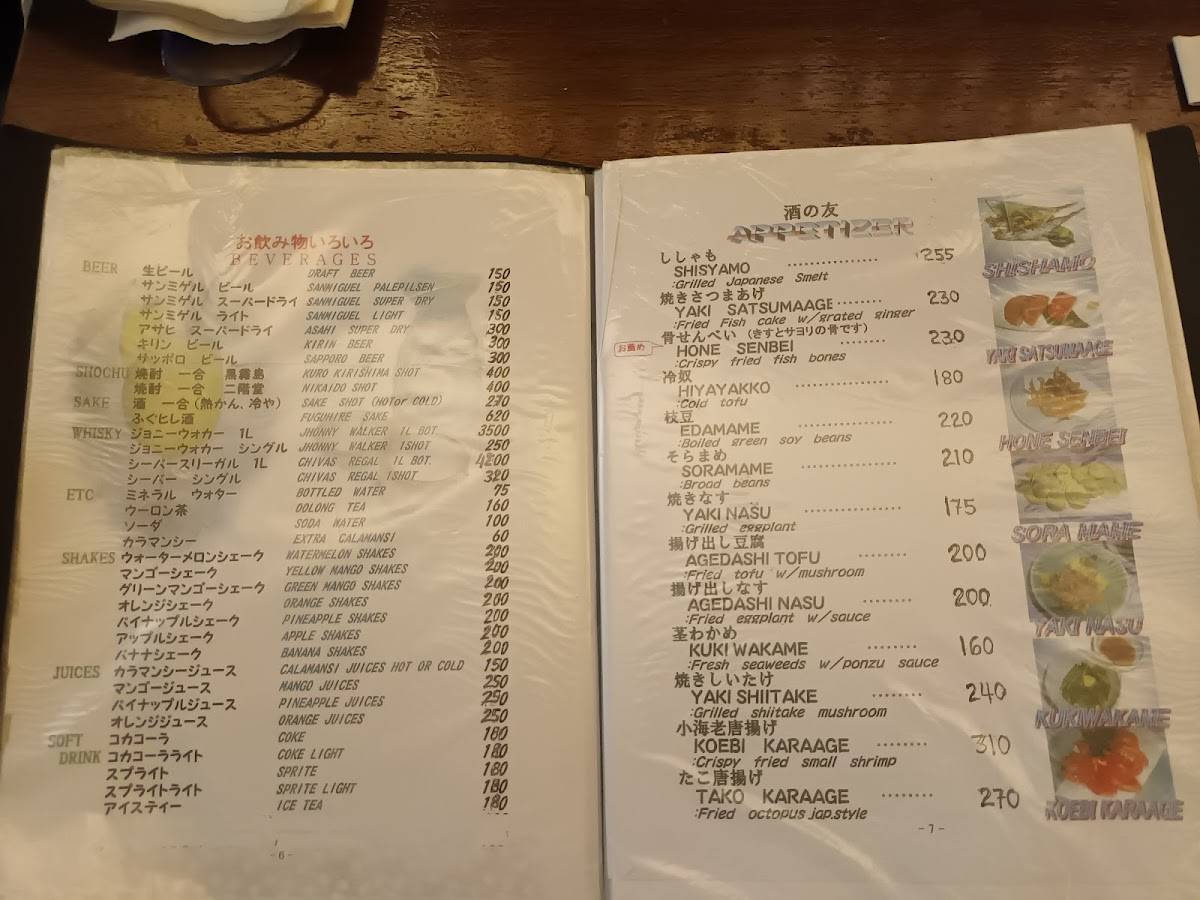 お飲み物いろいろ
BEVERAGES
BEER 生ビール DRAFT BEER 150
サンミゲル ビール SANMIGUEL PALEPILSEN 150
サンミゲル スーパードライ SANMIGUEL SUPER DRY 150
サンミゲル ライト SANMIGUEL LIGHT 150
アサヒ スーパードライ ASAHI SUPER DRY 300
キリン ビール KIRIN BEER 300
サッポロ ビール SAPPORO BEER 300
SHOCHU 焼酎 一合 黒霧島 KURO KIRISHIMA SHOT 400
焼酎 一合 二階堂 NIKAIDO SHOT 400
SAKE 酒 一合(熱かん、冷や) SAKE SHOT (HOTor COLD) 270
ふぐヒレ酒 FUGUHIRE SAKE 620
WHISKY ジョニーウォカー 1L JHONNY WALKER 1L BOT. 3500
ジョニーウォカー シングル JHONNY WALKER 1SHOT 250
シーバースリーガル 1L CHIVAS REGAL 1L BOT. 4200
シーバー シングル CHIVAS REGAL 1SHOT 320
ETC ミネラル ウォター BOTTLED WATER 75
ウーロン茶 OOLONG TEA 160
ソーダ SODA WATER 100
カラマンシー EXTRA CALAMANSI 60
SHAKES ウォーターメロンシェーク WATERMELON SHAKES 200
マンゴーシェーク YELLOW MANGO SHAKES 200
グリーンマンゴーシェーク GREEN MANGO SHAKES 200
オレンジシェーク ORANGE SHAKES 200
パイナップルシェーク PINEAPPLE SHAKES 200
アップルシェーク APPLE SHAKES 200
バナナシェーク BANANA SHAKES 200
JUICES カラマンシージュース CALAMANSI JUICES HOT OR COLD 150
マンゴージュース MANGO JUICES 250
パイナップルジュース PINEAPPLE JUICES 250
オレンジジュース ORANGE JUICES 250
SOFT コカコーラ COKE 180
DRINK コカコーラライト COKE LIGHT 180
スプライト SPRITE 180
スプライトライト SPRITE LIGHT 180
アイスティー ICE TEA 180
-6-
酒の友
APPETIZER
ししゃも
SHISYAMO ················ 255
:Grilled Japanese Smelt
焼きさつまあげ
YAKI SATSUMAAGE ········ 230
:Fried Fish cake w/grated ginger
骨せんべい (きすとサヨリの骨です)
お薦め
HONE SENBEI ········ 230
:Crispy fried fish bones
冷奴
HIYAYAKKO ················ 180
:Cold tofu
枝豆
EDAMAME ················ 220
:Boiled green soy beans
そらまめ
SORAMAME ················ 210
:Broad beans
焼きなす
YAKI NASU ················ 175
:Grilled eggplant
揚げ出し豆腐
AGEDASHI TOFU ········ 200
:Fried tofu w/mushroom
揚げ出しなす
AGEDASHI NASU ········ 200
:Fried eggplant w/sauce
茎わかめ
KUKI WAKAME ········ 160
:Fresh seaweeds w/ponzu sauce
焼きしいたけ
YAKI SHIITAKE ········ 240
:Grilled shiitake mushroom
小海老唐揚げ
KOEBI KARAAGE ········ 310
:Crispy fried small shrimp
たこ唐揚げ
TAKO KARAAGE ········ 270
:Fried octopus jap.style
-7-
SHISHAMO
YAKI SATSUMAAGE
HONE SENBEI
SORA MAME
YAKI NASU
KUKIWAKAME
KOEBI KARAAGE